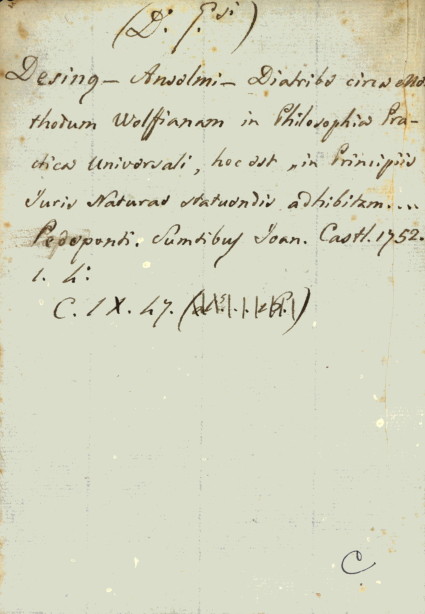 (D. J. si)
Desing – Anselmi – Diatribe circa Me-
thodum Wolffianam in Philosophia Pra-
ctica Universali, hoc est „in Principiis
Juris Naturae statuendis adhibitam....
Pedeponti. Sumtibus Joan. Gastl. 1752.
1. 4:
C. IX. 47.
C